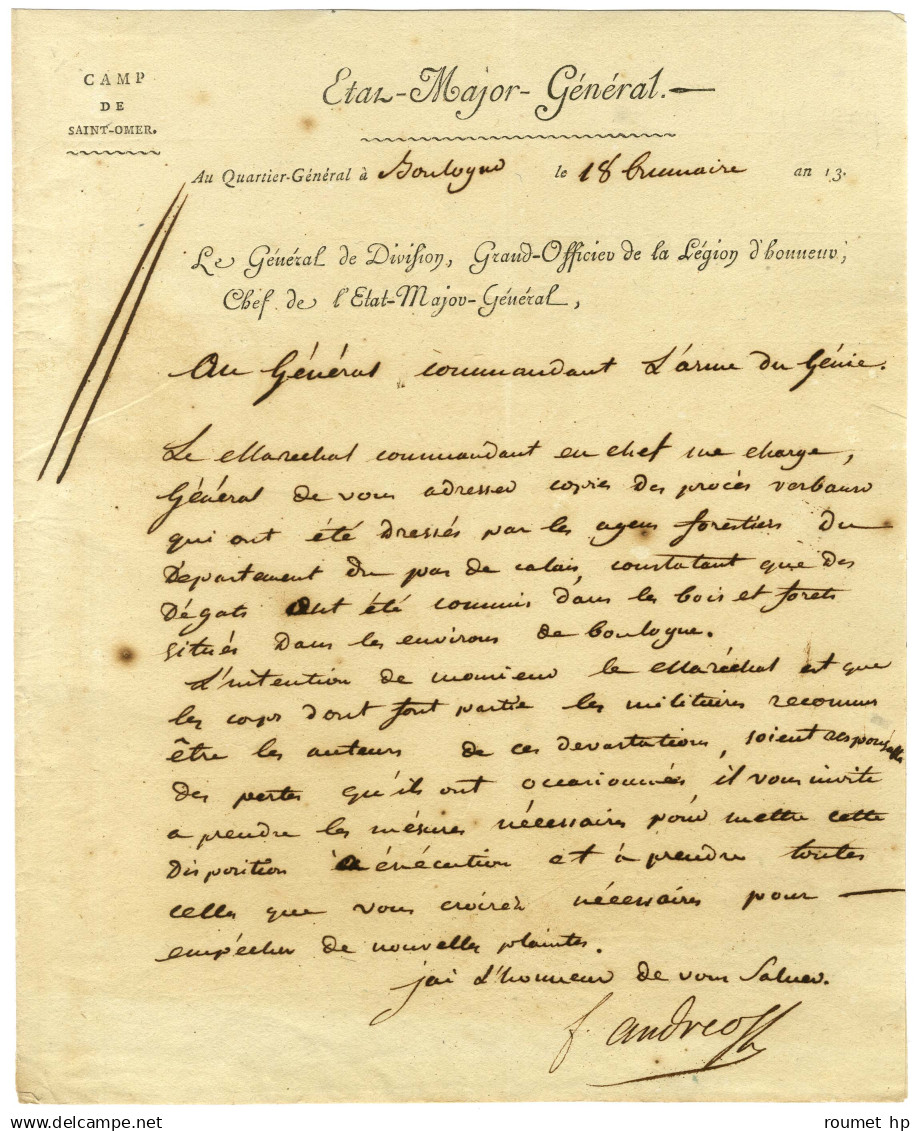 CAMP
DE
SAINT-OMER.
Etat-Major-Général.
Au Quartier-Général à Boulogne le 18 brumaire an 13.
Le Général de Division, Grand-Officier de la Légion d'honneur,
Chef de l'Etat-Major-Général,
Au Général commandant L'arme du Génie.
Le Maréchal commandant en chef me charge,
Général de vous adresser copies des procès verbaux
qui ont été dressés par les agens forestiers du
Département du pas de calais, constatant que des
Dégats ont été commis dans les bois et forets
situés dans les environs de boulogne.
L'intention de monsieur le Maréchal est que
les corps dont font partie les militaires reconnus
être les auteurs de ces devastations, soient responsables
des pertes qu'ils ont occasionnées, il vous invite
a prendre les mésures nécessaires pour mettre cette
disposition à exécution et à prendre toutes
celles que vous croirez nécessaires pour
empécher de nouvelles plaintes.
jai l'honneur de vous Saluer.
f. andreossy
roumet hp